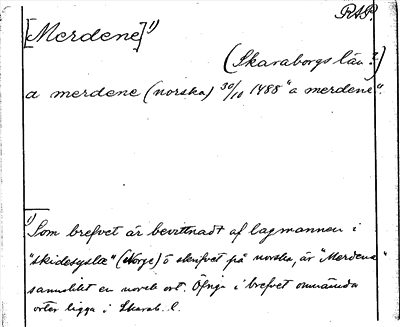 RAP.
[Merdene]¹⁾
(Skaraborgs län?)
a merdene (norska) 30/10 1488 "a merdene".
1) Som brefvet är bevittnadt af lagmannen i
"skidesyslæ" (Norge) o skrifvet på norska, är "Merdene"
sannolikt en norsk ort. Öfriga i brefvet omnämnda
orter ligga i Skarab. l.